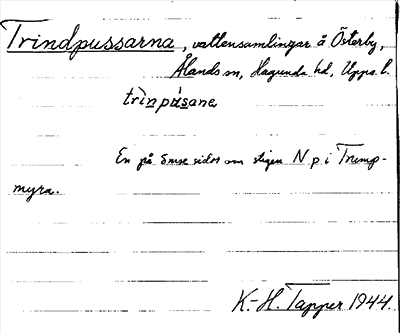 Trindpussarna, vattensamlingar å Österby,
Ålands sn, Hagunda hd, Upps. l.
trìnpúsane
En på ömse sidor om stigen N p i Tremp-
myra.
K.-H. Tapper 1944.